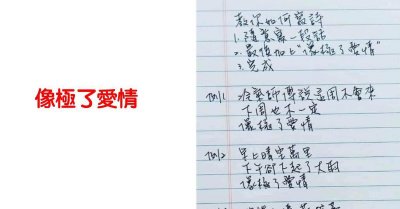 像極了愛情
教你如何寫詩
1. 隨意寫一段話
2. 最後加上"像極了愛情"
3. 完成
例1. 冷氣師傅說這周不會來
下周也不一定
像極了愛情
例2 早上晴空萬里
下午卻下起了大雨
像極了愛情